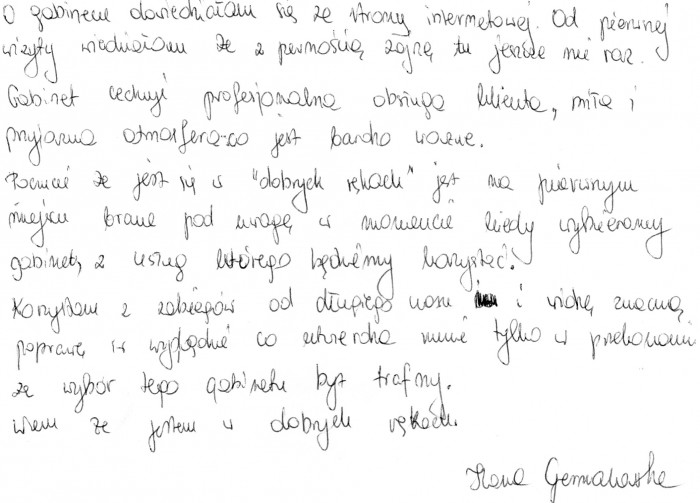 O gabinecie dowiedziałam się ze strony internetowej. Od pierwszej
wizyty wiedziałam że z pewnością zajrzę tu jeszcze nie raz.
Gabinet cechuje profesjonalna obsługa klienta, miła i
przyjazna atmosfera-co jest bardzo ważne.
Poczucie że jest się w "dobrych rękach" jest na pierwszym
miejscu brane pod uwagę w momencie kiedy wybieramy
gabinet, z usług którego będziemy korzystać.
Korzystam z zabiegów od długiego czasu i widzę znaczną
poprawę w wyglądzie co utwierdza mnie tylko w przekonaniu
że wybór tego gabinetu był trafny.
Wiem że jestem w dobrych rękach.
Ilona